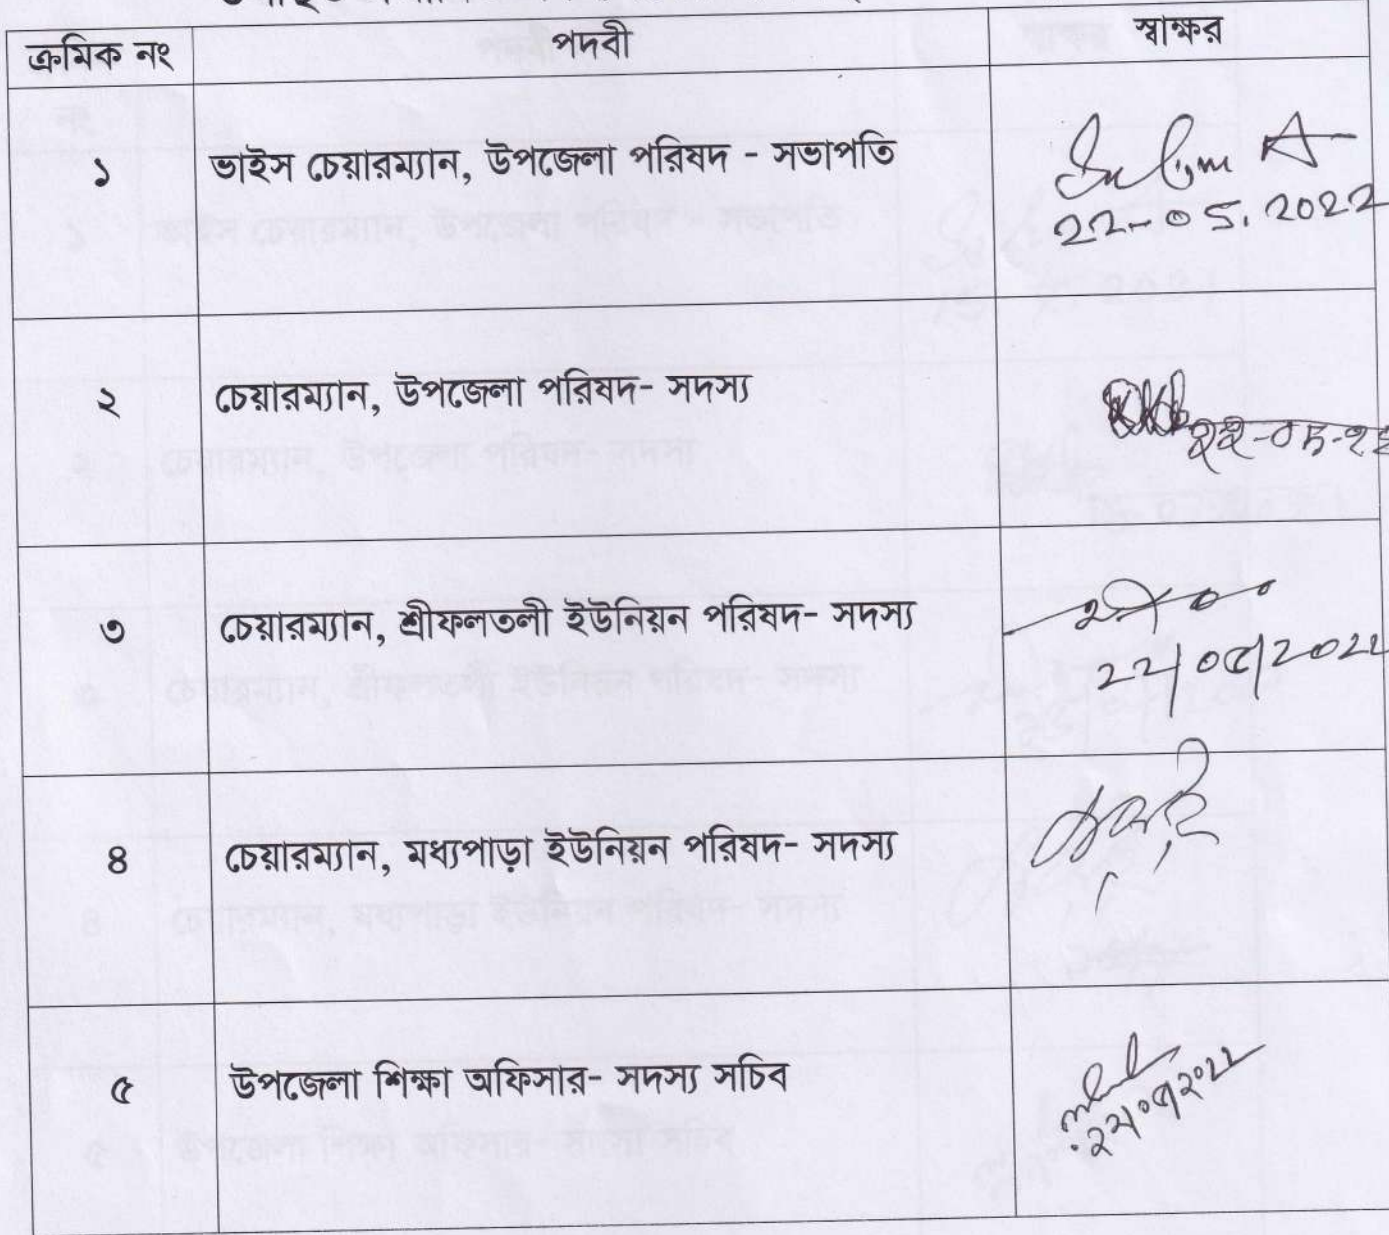 ক্রমিক নং পদবী স্বাক্ষর
১ ভাইস চেয়ারম্যান, উপজেলা পরিষদ - সভাপতি
22-05.2022
২ চেয়ারম্যান, উপজেলা পরিষদ- সদস্য
২২-০৫-২২
৩ চেয়ারম্যান, শ্রীফলতলী ইউনিয়ন পরিষদ- সদস্য
22/05/2022
৪ চেয়ারম্যান, মধ্যপাড়া ইউনিয়ন পরিষদ- সদস্য
৫ উপজেলা শিক্ষা অফিসার- সদস্য সচিব
২২/০৫/২০২২